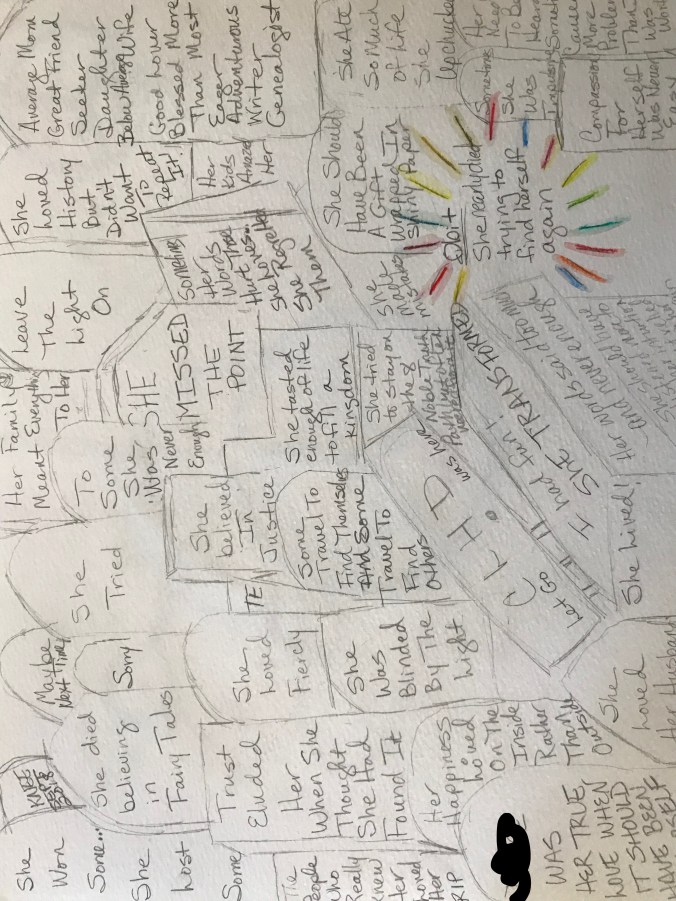 She
Won
Some...
She
Lost
Some
She died
believing
in
Fairy Tales
Maybe
Next Time
Sorry!
She
Tried
Her Family
Meant Everything
To Her
To
Some
She
Was
Never
Enough
Leave
The
Light
On
She
Loved
History
But
Didn't
Want
To
Repeat
It!
Average Mom
Great Friend
Seeker
Daughter
Below Average Wife
Good Lover
Blessed More
Than Most
Eager
Adventurous
Writer
Genealogist
The
People
Who
Really
Knew
Her
Loved
Her
RIP
Trust
Eluded
Her
When She
Thought
She Had
Found It
She
Loved
Fiercly
She
believed
In
Justice
SHE
MISSED
THE
POINT
Sometimes
Her
Words
Hurt
She Regretted
Them
Her
Kids
Amazed
Her
She
Was
Blinded
By The
Light
Some
Travel To
Find Themselves
And Some
Travel To
Find
Others
She tasted
enough of life
to fill a
kingdom
She Should
Have Been
A Gift
Wrapped In
Shiny Paper
She Ate
So Much
of Life
She
Upchucked
Her
Happiness
Loved
On The
Inside
Rather
Than
Outside
She tried
to stay on
She
Made
Mistakes
Doit
She really died
trying to
find herself
again
Sometimes
She
Was
Her
Need
To Be
Compassion
For
Herself
Was Never
Easy
Let Go
11-11-11
had fun!
SHE TRANSFORMED
WAS
HER TRUE,
LOVE WHEN
IT SHOULD
HAVE BEEN
She
Loved
Her Husband
She Lived!
Her words said too much
and never enough